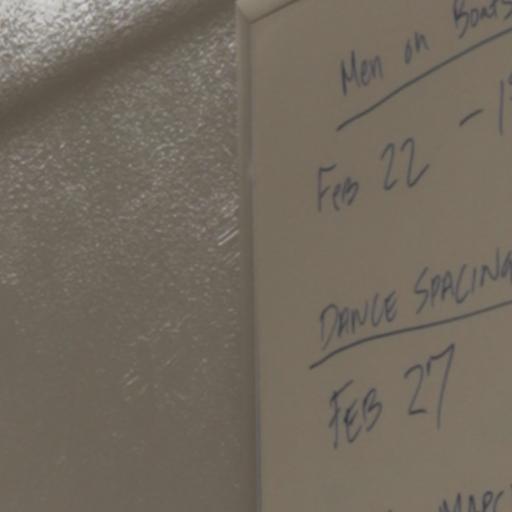 Men on Boats
Feb 22 -
DANCE SPACING
FEB 27